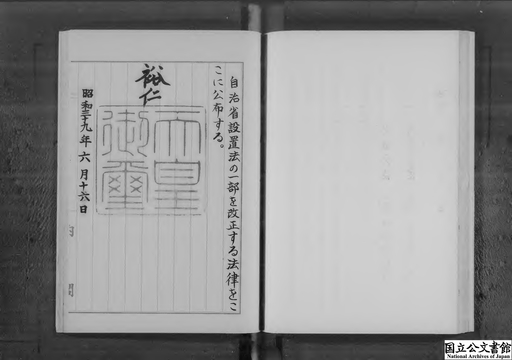 自治省設置法の一部を改正する法律をこ
こに公布する。
裕仁
天皇
御璽
昭和三十九年六月十六日
国立公文書館
National Archives of Japan